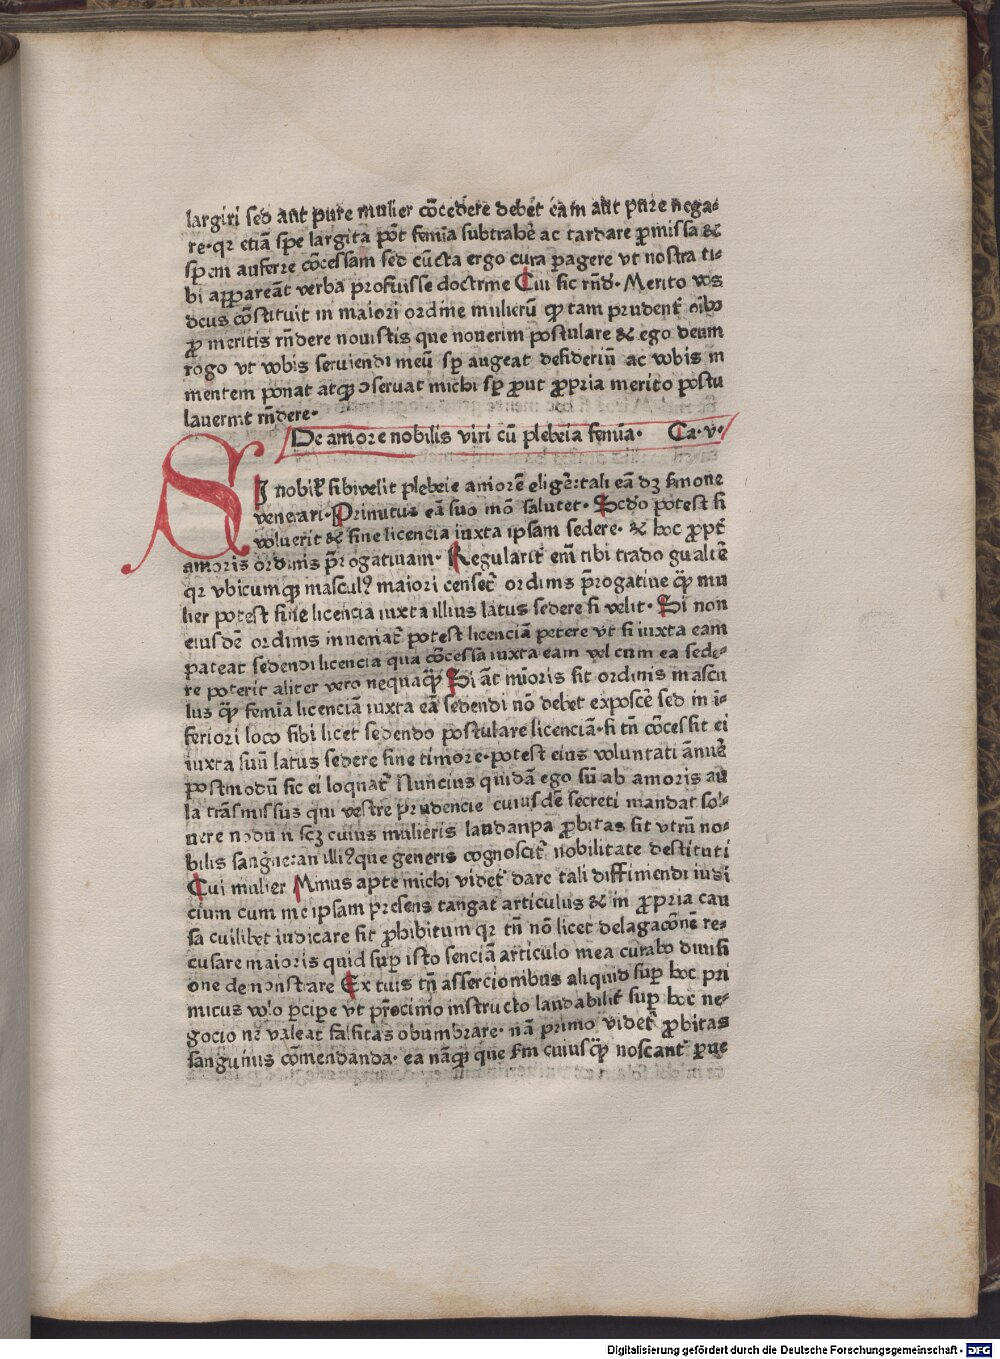 largiri sed aut pure mulier cōcedere debet eam aut pure nega⸗
re·qr etiā spe largita pōt femīa subtrahe̅ ac tardare p̄missa &
spem auferre cōcessam sed cūcta ergo cura pagere vt nostra ti⸗
bi appareāt verba profuisse doctrine Cui sic rn̄d· Merito vos
deus cōstituit in maiori ordine mulierū qꝫ tam prudent̄ oīb
ꝓ meritis rn̄dere nouistis que nouerim postulare & ego deum
rogo vt vobis seruiendi meū sp augeat desideriū ac vobis in
mentem ponat atqꝫ ɔseruat michi sp ꝓut ꝓpria merito postu
lauerint rn̄dere·
De amore nobilis viri cū plebeia femīa· Ca·v·
SI nobil' sibi velit plebeie amorē elige̅:tali eā dꝫ sermone
venerari·Primitus eā suo mō salutet· Scdo potest si
voluerit & sine licencia iuxta ipsam sedere· & hoc ꝓpt̄
amoris ordinis p̄rogatiuam· Regularit̄ em̄ tibi trado gualtē
qr vbicumqꝫ masculꝰ maiori censet̄ ordinis p̄rogatiue qꝫ mu
lier potest sine licencia iuxta illius latus sedere si velit· Si non
eiusdē ordinis inueniat̄ potest licenciā petere vt si iuxta eam
pateat sedendi licencia qua cōcessa iuxta eam vel cum ea sede⸗
re poterit aliter vero nequaqꝫ Si āt mīoris sit ordinis mascu
lus qꝫ femīa licenciā iuxta eā sedendi nō debet exposce̅ sed in i⸗
feriori loco sibi licet sedendo postulare licenciā·si tn̄ cōcessit ei
iuxta suū latus sedere sine timore·potest eius voluntati ānue̅
postmodū sic ei loquat̄ Nuncius quidā ego sū ab amoris au
la trāsmissus qui vestre prudencie cuiusdē secreti mandat sol⸗
uere nodū n scꝫ cuius mulieris laudanpa ꝓbitas sit vtrū no⸗
bilis sanguneran illiꝰque generis cognoscit̄ nobilitate destituti
Cui mulier Minus apte michi videt̄ dare tali diffiniendi iudi
cium cum me ipsam presens tangat articulus & in ꝓpria cau
sa cuilibet iudicare sit ꝓhibitum qr tn̄ nō licet delagacōnē re⸗
cusare maioris quid sup isto senciā articulo mea curabo diuisi
one demonstrare Ex tuis tn̄ assercionibus aliquid sup hoc pri
mitus volo pcipe vt p̄rocimo instructo laudabilit̄ sup hoc ne⸗
gocio nō valeat falsitas obumbrare· nā primo videt̄ ꝓbitas
sanguinis cōmendanda· ea nāqꝫ que sm cuiusqꝫ noscant̄ pue
Digitalisierung gefördert durch die Deutsche Forschungsgemeinschaft - DFG